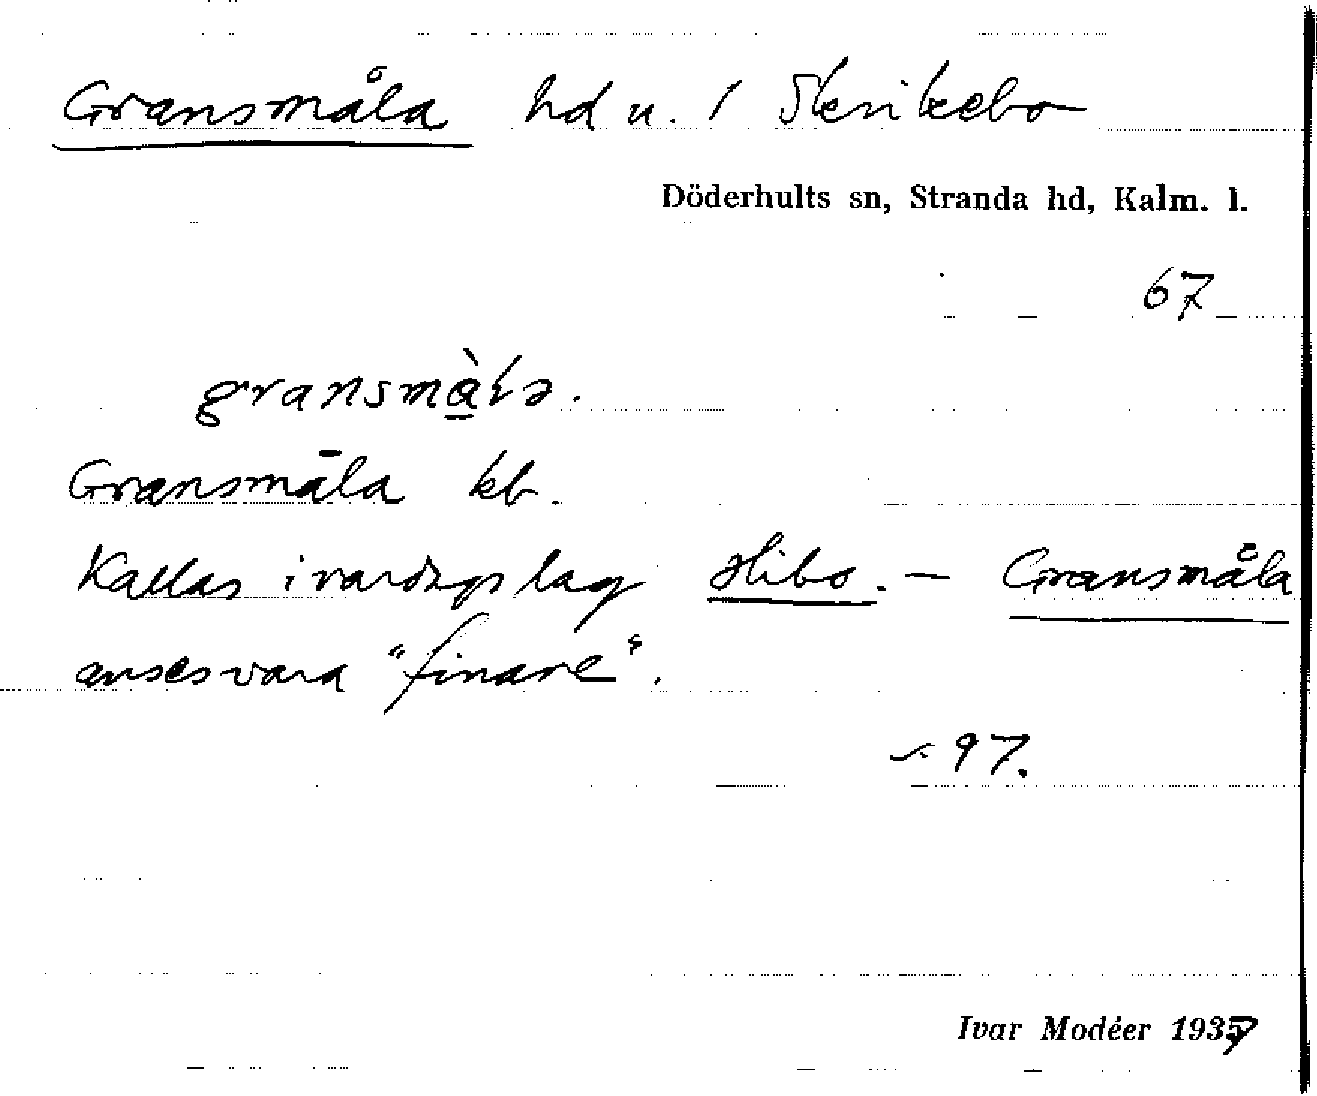 Gransmåla hd u. / Skrikebo
Döderhults sn, Stranda hd, Kalm. l.
67
gransmà̱lə.
Gransmåla kb.
Kallas i vardagslag Hibo. — Gransmåla
anses vara "finare".
97.
Ivar Modéer 1937